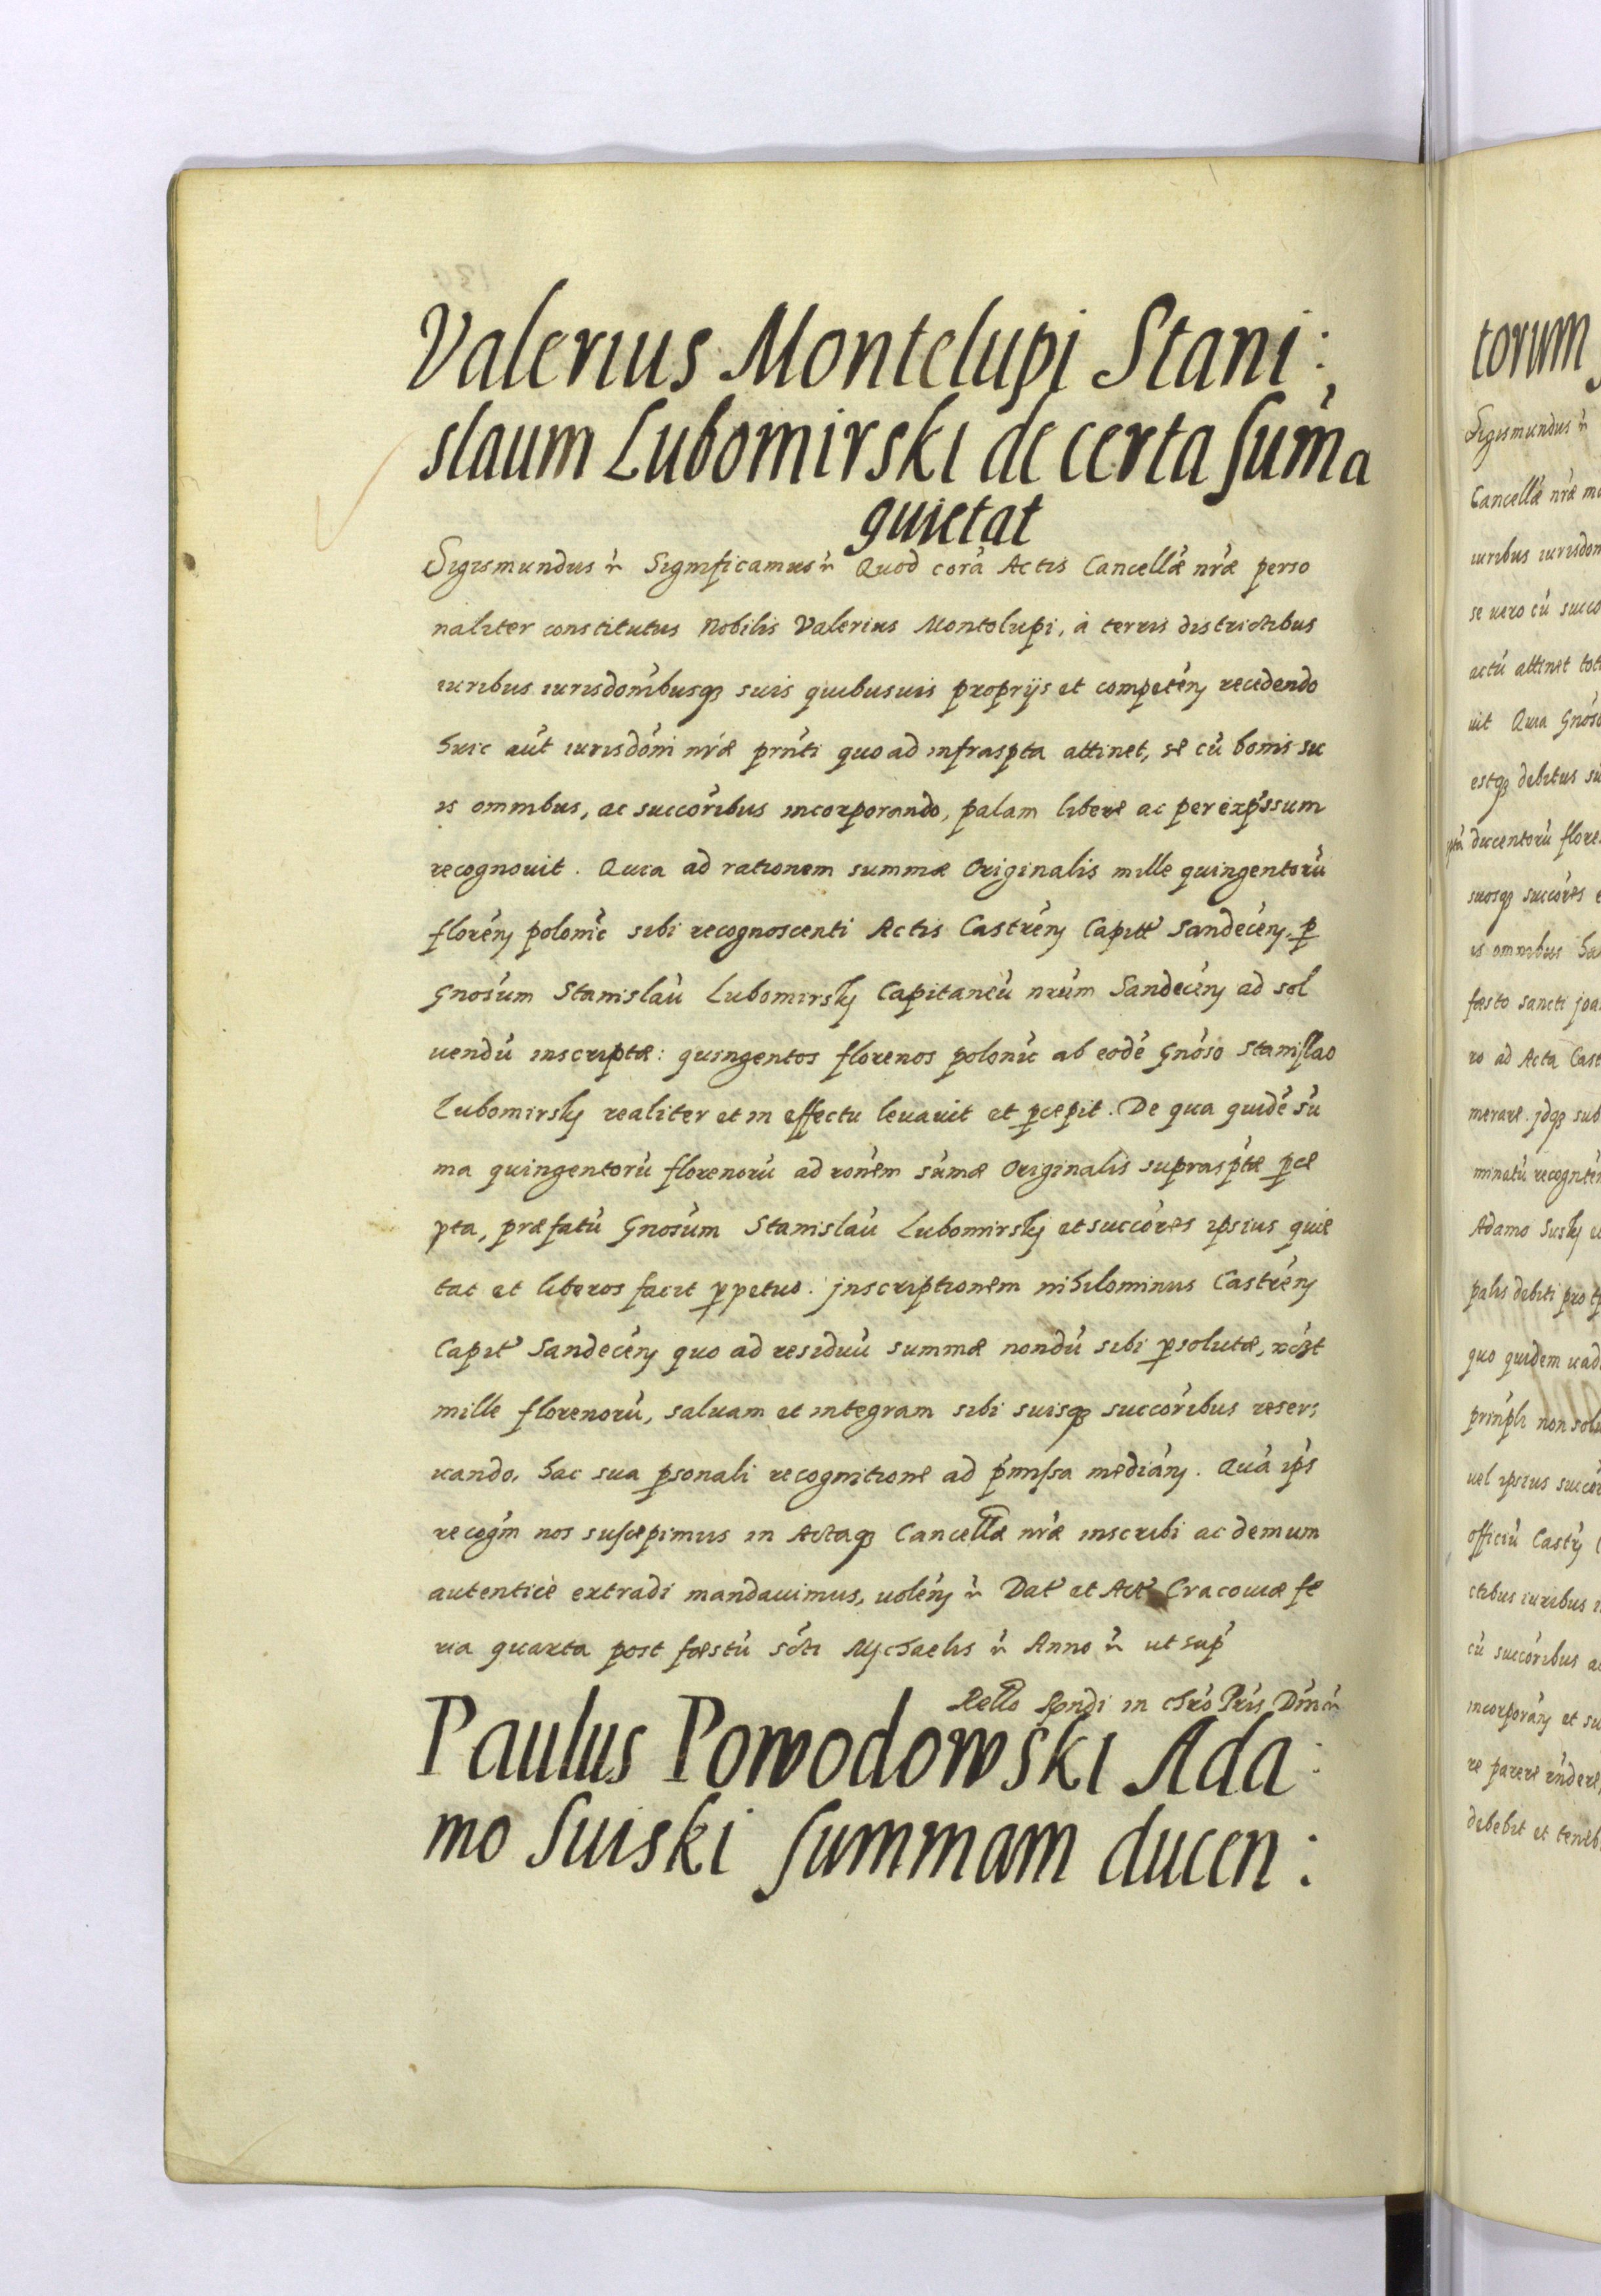 Valerius Montelupi Stani:
slaum Lubomirski de certa sum̃a
quietat
Sigismundus etc Significamus etc Quod corá Actis Cancellæ nr̃æ perso
naliter constitutus Nobilis Valerius Montolupi, à terris districtibus
iuribus iurisdonibusq̃ suis quibusuis proprijs et competeñ recedendo
huic aut́ iurisdoni nr̃æ prñti quo ad infraspta attinet, se cú bonis su
is omnibus, ac succoribus incorporando, palam libere ac per expssum
recognouit. Quia ad rationem summæ Originalis mille quingentorú
floreñ polonic sibi recognoscenti Actis Castreñ Capitt Sandeceñ. p
Gnosum Stanislaú Lubomirskj Capitaneú nrúm Sandeceñ ad sol
uendú inscriptæ: quingentos florenos polonic ab eodé Gnoso Stanislao
Lubomirskj realiter et in effectu leuauit et pcepit. De qua quidé sú
ma quingentorú florenorú ad ronem súmæ Originalis supraspttæ pce
pta, præfatú Gnosum Stanislaú Lubomirskj et succores ipsius quie
tat et liberos facit ppetuo. jnscriptionem nihilominus Castreñ
Capit Sandeceñ quo ad residuú summæ nondú sibi psolutæ,
mille florenorú, saluam et integram sibi suisq̃ succoribus reser:
uando, hac sua psonali recognitione ad pmissa mediañ. Quá ips
recogm nos suscepimus in Actaq̃ Cancellæ nr̃æ inscribi ac demum
autenticè extradi mandauimus, uoleñ etc Dat et Act Cracouiæ fe
ria quarta post fæstú scti Mjchaelis etc Anno etc ut sup
Rello Rndi in chro Pris Dm etc
Paulus Powodowski Ada:
mo Suiski summam ducen:
torum
Sigismundus etc
Cancellæ nr̃æ
iuribus iurisdon
se uero cú succo
actú attinet tot
uit Quia Gnos
estq̃ debitus su
ducentorú flore
suosq̃ succores e
is omnibus
fæsto sancti joa
ro ad Acta Cast
merare. jdq̃ sub
minatú
Adamo Suskj
palis debiti pro
quo quidem uad
non
uel ipsius succo
officiú
ctibus iuribus
cú succoribus a
incorporañ et su
re parere
debebit et teneb